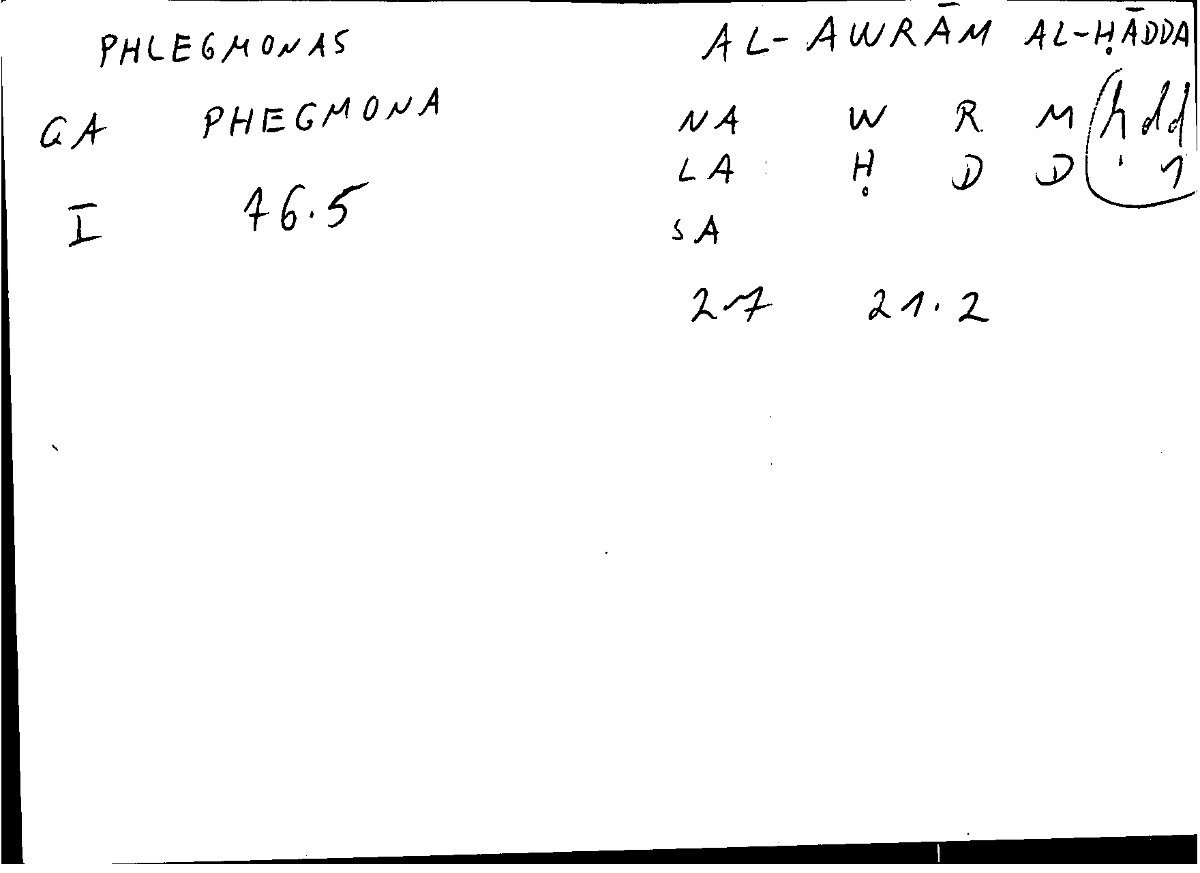 PHLEGMONAS AL-AWRĀM AL-ḤĀDDA
GA PHEGMONA NA W R M ḥdd
LA Ḥ D D 1
I 76.5 SA
2-7 21.2